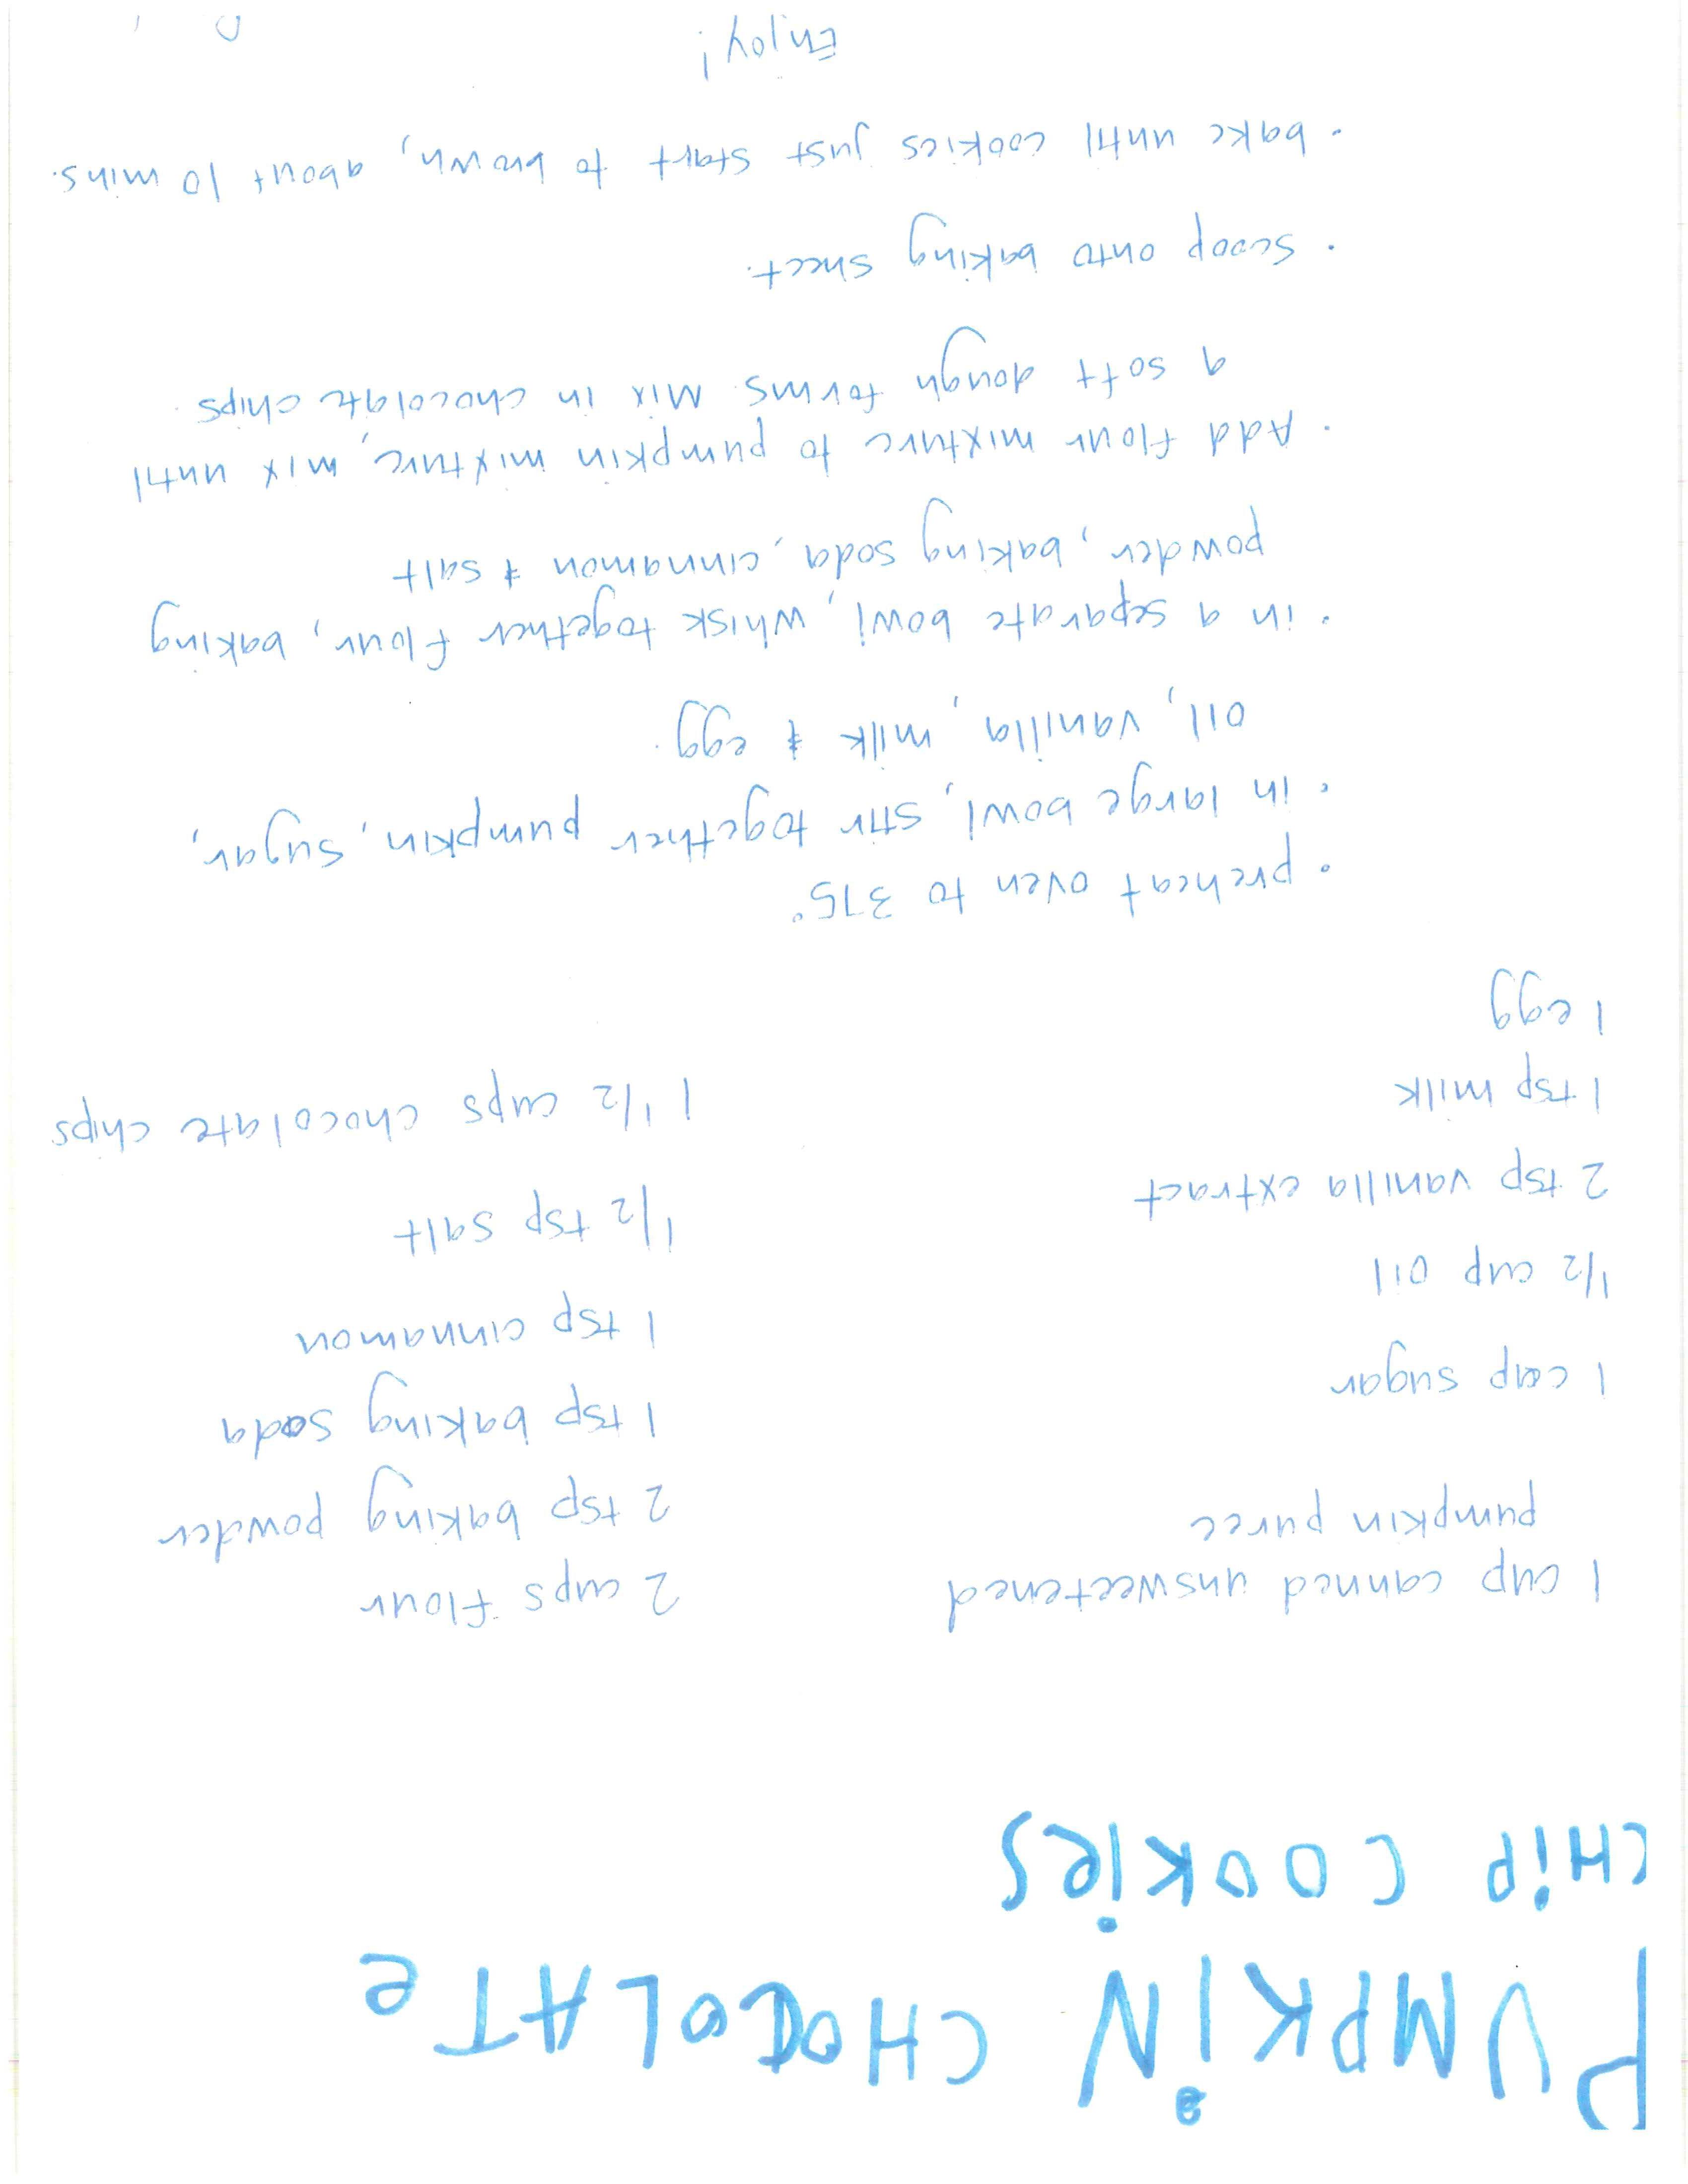 PUMPKiN CHOCOLATE
CHiP COOKieS
1 cup canned unsweetened
pumpkin puree
1 cup sugar
1/2 cup oil
2 tsp vanilla extract
1 tsp milk
1 egg
2 cups flour
2 tsp baking powder
1 tsp baking soda
1 tsp cinnamon
1/2 tsp salt
1 1/2 cups chocolate chips
• preheat oven to 375°
• in large bowl, stir together pumpkin, sugar,
oil, vanilla, milk & egg.
• in a separate bowl, whisk together flour, baking
powder, baking soda, cinnamon & salt
• Add flour mixture to pumpkin mixture, mix until
a soft dough forms. Mix in chocolate chips.
• scoop onto baking sheet.
• bake until cookies just start to brown, about 10 mins.
Enjoy!